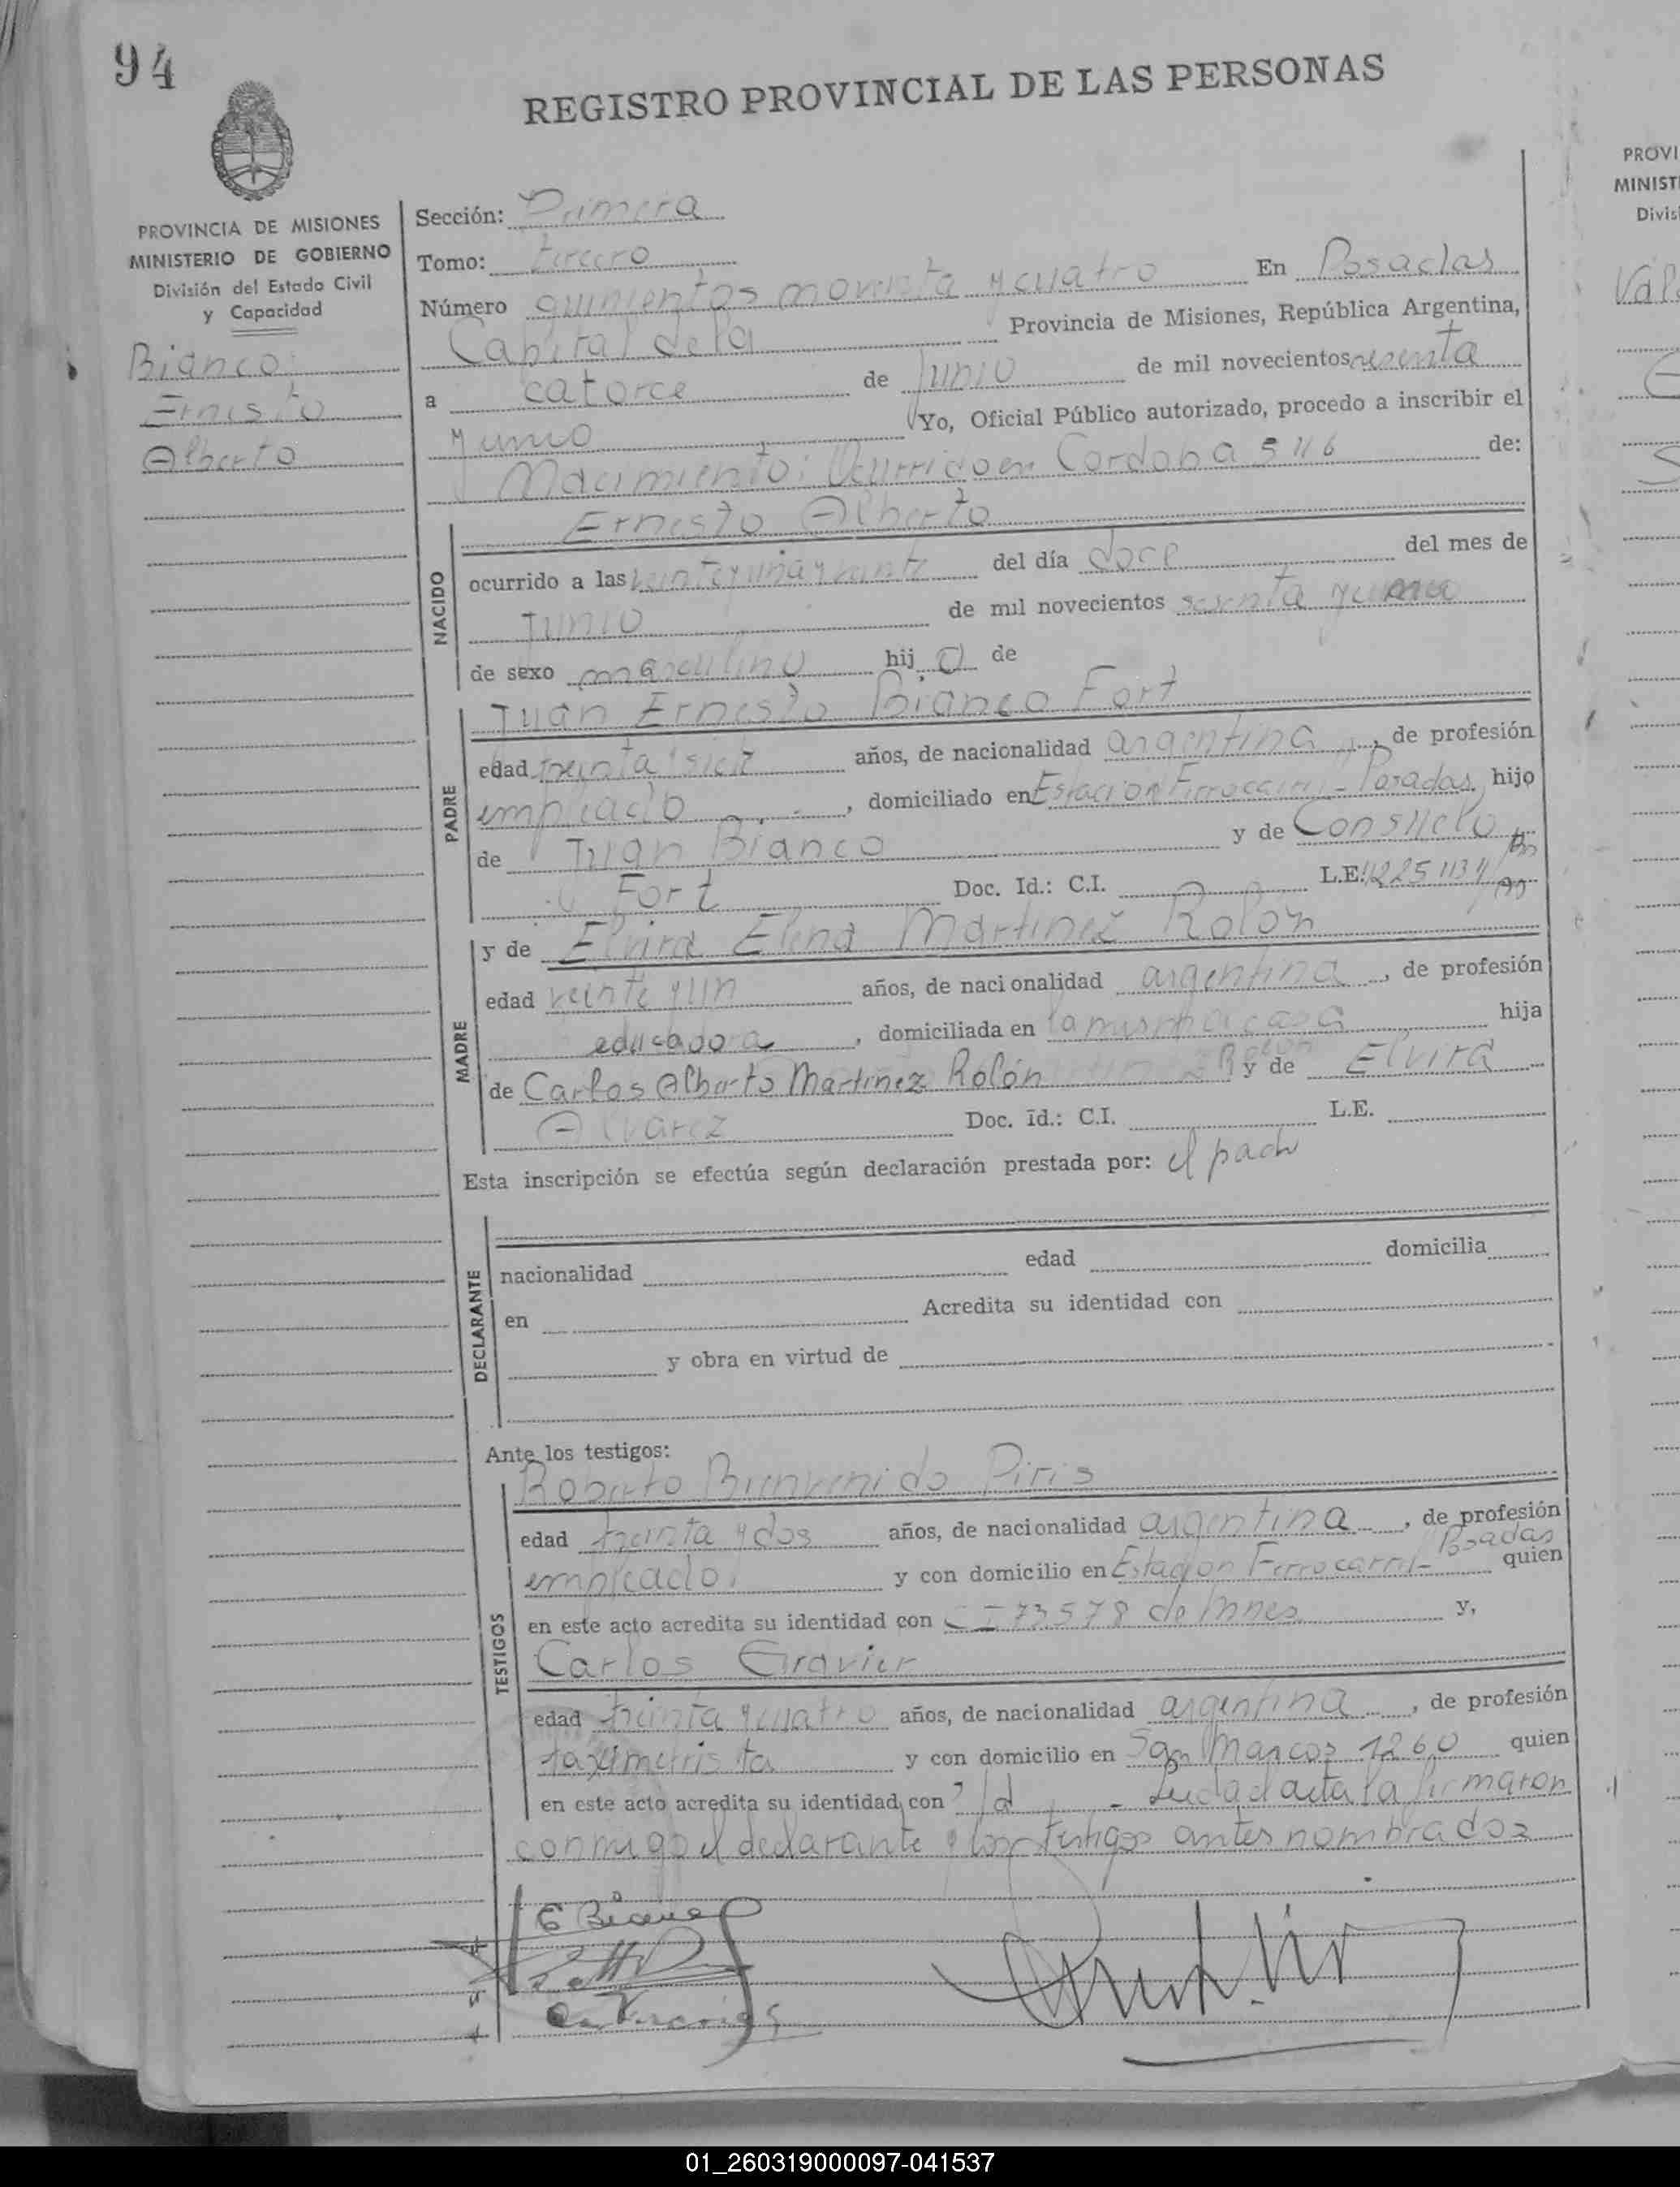 94
REGISTRO PROVINCIAL DE LAS PERSONAS
PROVINCIA DE MISIONES
MINISTERIO DE GOBIERNO
División del Estado Civil
y Capacidad
Bianco
Ernesto
Alberto
Sección: Primera
Tomo: tercero
Número quinientos noventa y cuatro En Posadas
Capital de la Provincia de Misiones, República Argentina,
a catorce de Junio de mil novecientos sesenta
y uno Yo, Oficial Público autorizado, procedo a inscribir el
Nacimiento: Ocurrido en Cordoba 5116 de:
Ernesto Alberto
NACIDO
ocurrido a las veinte y una y veinte del día doce del mes de
Junio de mil novecientos sesenta y uno
de sexo masculino hij o de
Juan Ernesto Bianco Fort
PADRE
edad treinta siete años, de nacionalidad argentina, de profesión
empleado, domiciliado en Estacion Ferrocarril - Posadas hijo
de Juan Bianco y de Consuelo
Fort Doc. Id.: C.I. L.E.
y de Elvira Elena Martinez Rolón
MADRE
edad veinte y un años, de nacionalidad argentina, de profesión
educadora, domiciliada en la misma casa hija
de Carlos Alberto Martinez Rolón y de Elvira
Alvarez Doc. Id.: C.I. L.E.
Esta inscripción se efectúa según declaración prestada por: el padre
DECLARANTE
nacionalidad edad domicilia
en Acredita su identidad con
y obra en virtud de
Ante los testigos:
Roberto Bienvenido Piris
TESTIGOS
edad treinta y dos años, de nacionalidad argentina, de profesión
empleado, y con domicilio en Estacion Ferrocarril - Posadas quien
en este acto acredita su identidad con CI 73.578 de Mnes y,
Carlos Gravier
edad treinta y cuatro años, de nacionalidad argentina, de profesión
taximetrista y con domicilio en San Marcos 1260 quien
en este acto acredita su identidad con Id - Leida el acta la firmaron
conmigo el declarante y los testigos antes nombrados
E Bianco
PROVI
MINIST
Divis
01_260319000097-041537